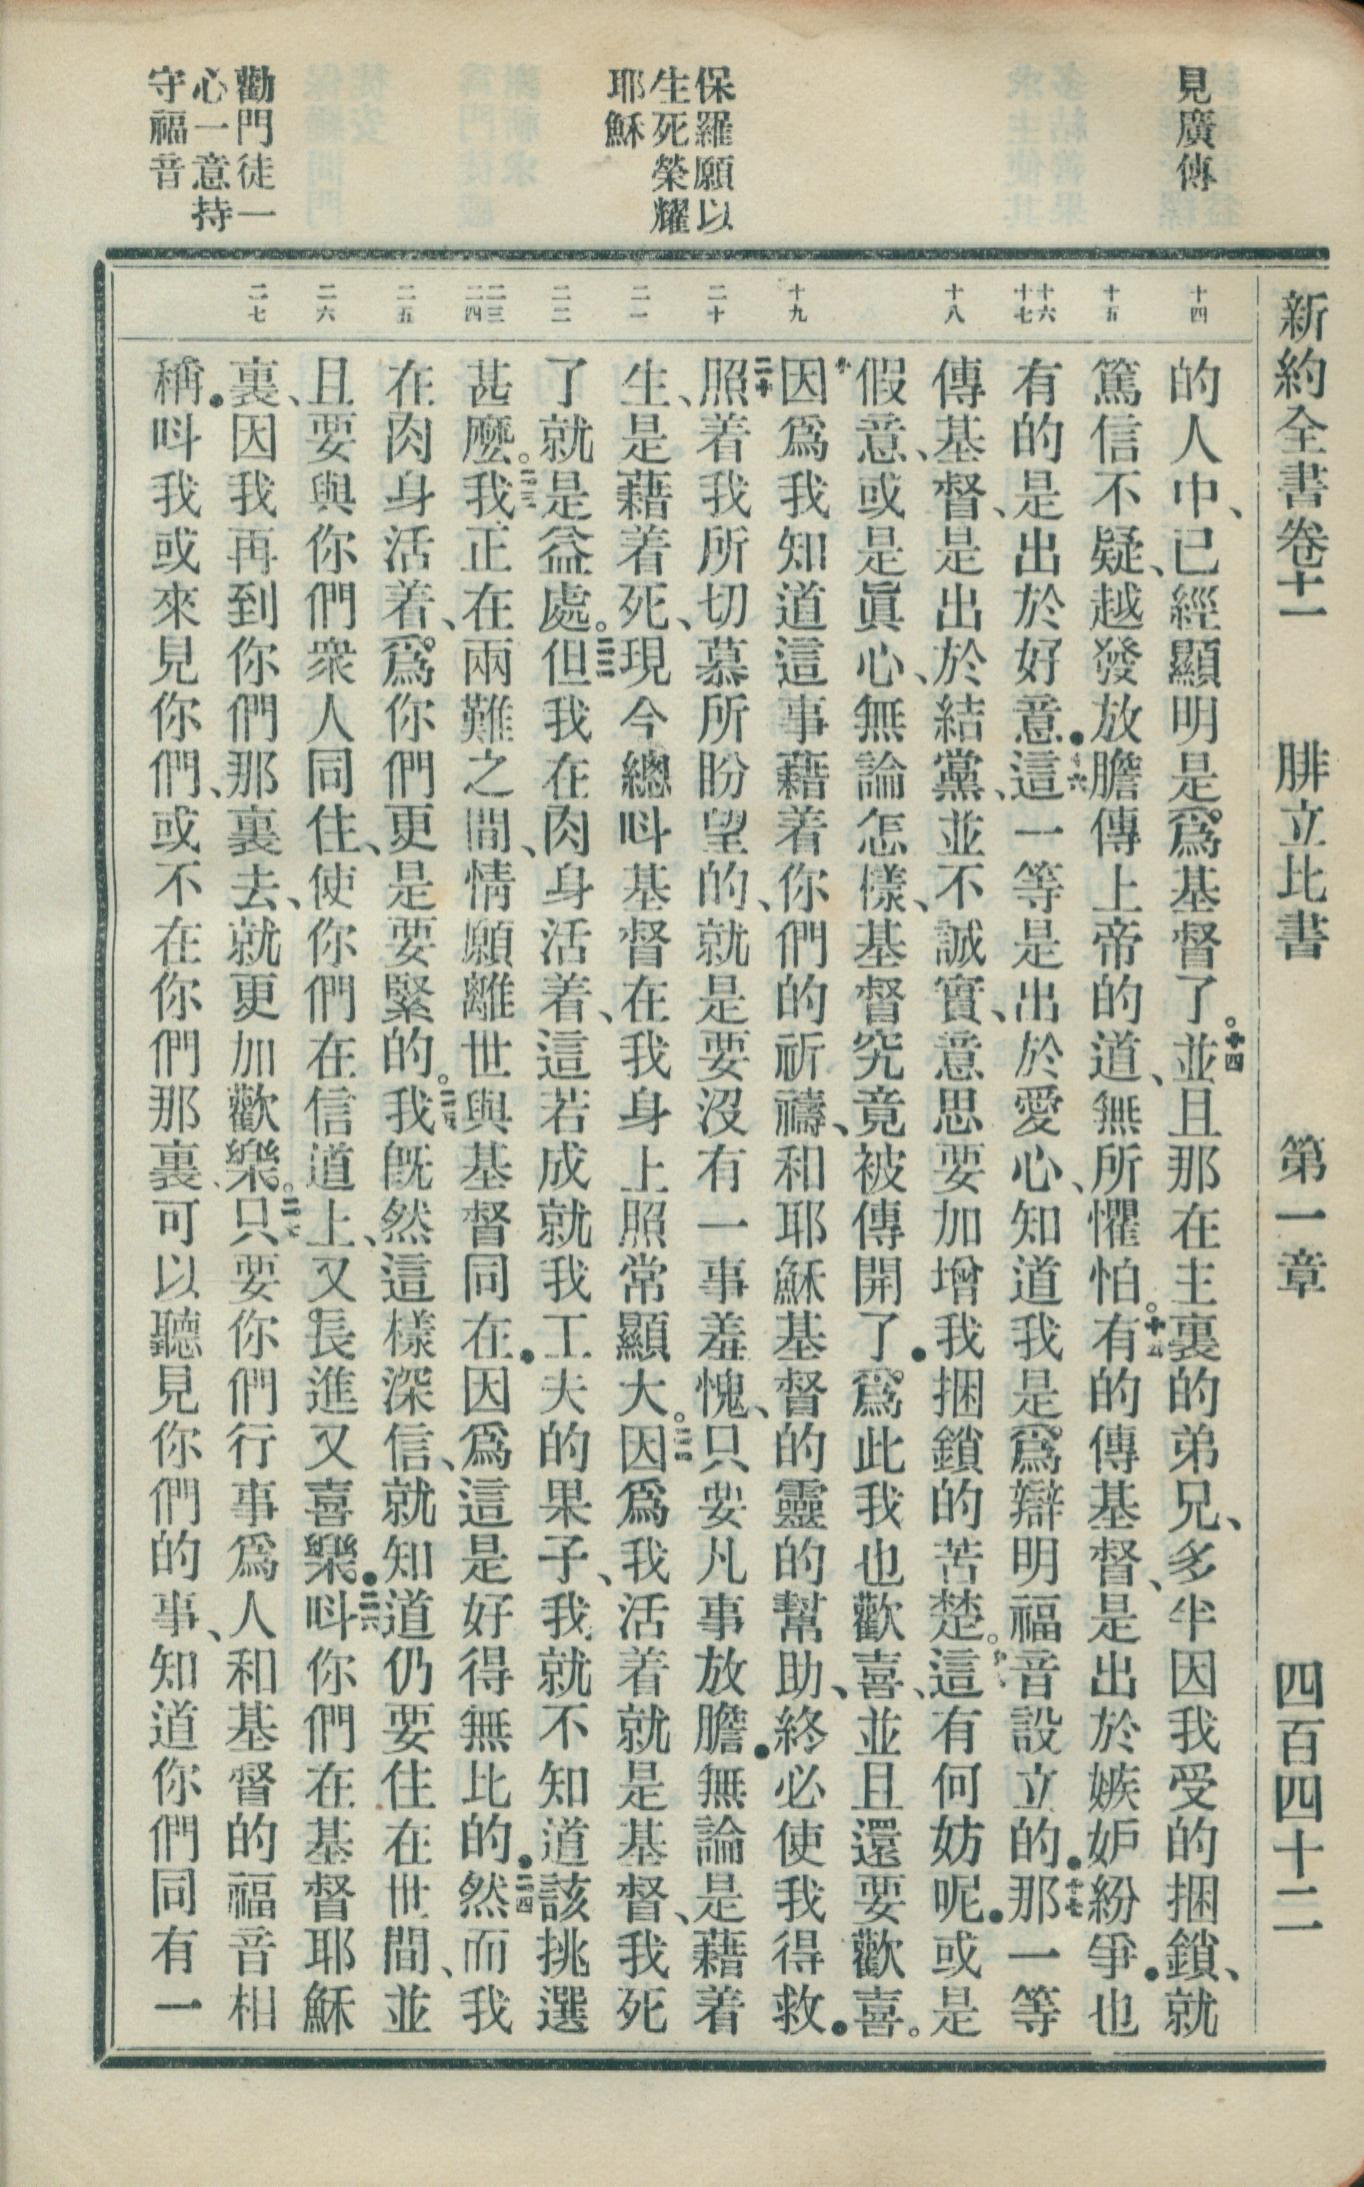 見廣傳
保羅願以
生死榮耀
耶穌
勸門徒一
心一意持
守福音
新約全書卷十一　腓立比書　第一章　四百四十二
十四
十五
十六
十七
十八
十九
二十
二一
二二
二三
二四
二五
二六
二七
的人中、已經顯明是爲基督了。十四並且那在主裏的弟兄、多半因我受的捆鎖、就
篤信不疑、越發放膽傳上帝的道、無所懼怕。十五有的傳基督、是出於嫉妒紛爭●也
有的是出於好意●十六這一等是出於愛心、知道我是爲辯明福音設立的●十七那一等
傳基督、是出於結黨、並不誠實、意思要加增我捆鎖的苦楚。十八這有何妨呢●或是
假意、或是眞心、無論怎樣、基督究竟被傳開了●爲此我也歡喜、並且還要歡喜。
十九因爲我知道這事藉着你們的祈禱、和耶穌基督的靈的幫助、終必使我得救●
二十照着我所切慕所盼望的、就是要沒有一事羞愧、只要凡事放膽●無論是藉着
生、是藉着死、現今總呌基督在我身上照常顯大。二一因爲我活着就是基督、我死
了就是益處。二二但我在肉身活着、這若成就我工夫的果子、我就不知道該挑選
甚麼。二三我正在兩難之間、情願離世與基督同在●因爲這是好得無比的●二四然而我
在肉身活着、爲你們更是要緊的。二五我既然這樣深信、就知道仍要住在世間、並
且要與你們衆人同住、使你們在信道上、又長進又喜樂●二六呌你們在基督耶穌
裏、因我再到你們那裏去、就更加歡樂。二七只要你們行事爲人和基督的福音相
稱●呌我或來見你們、或不在你們那裏、可以聽見你們的事、知道你們同有一